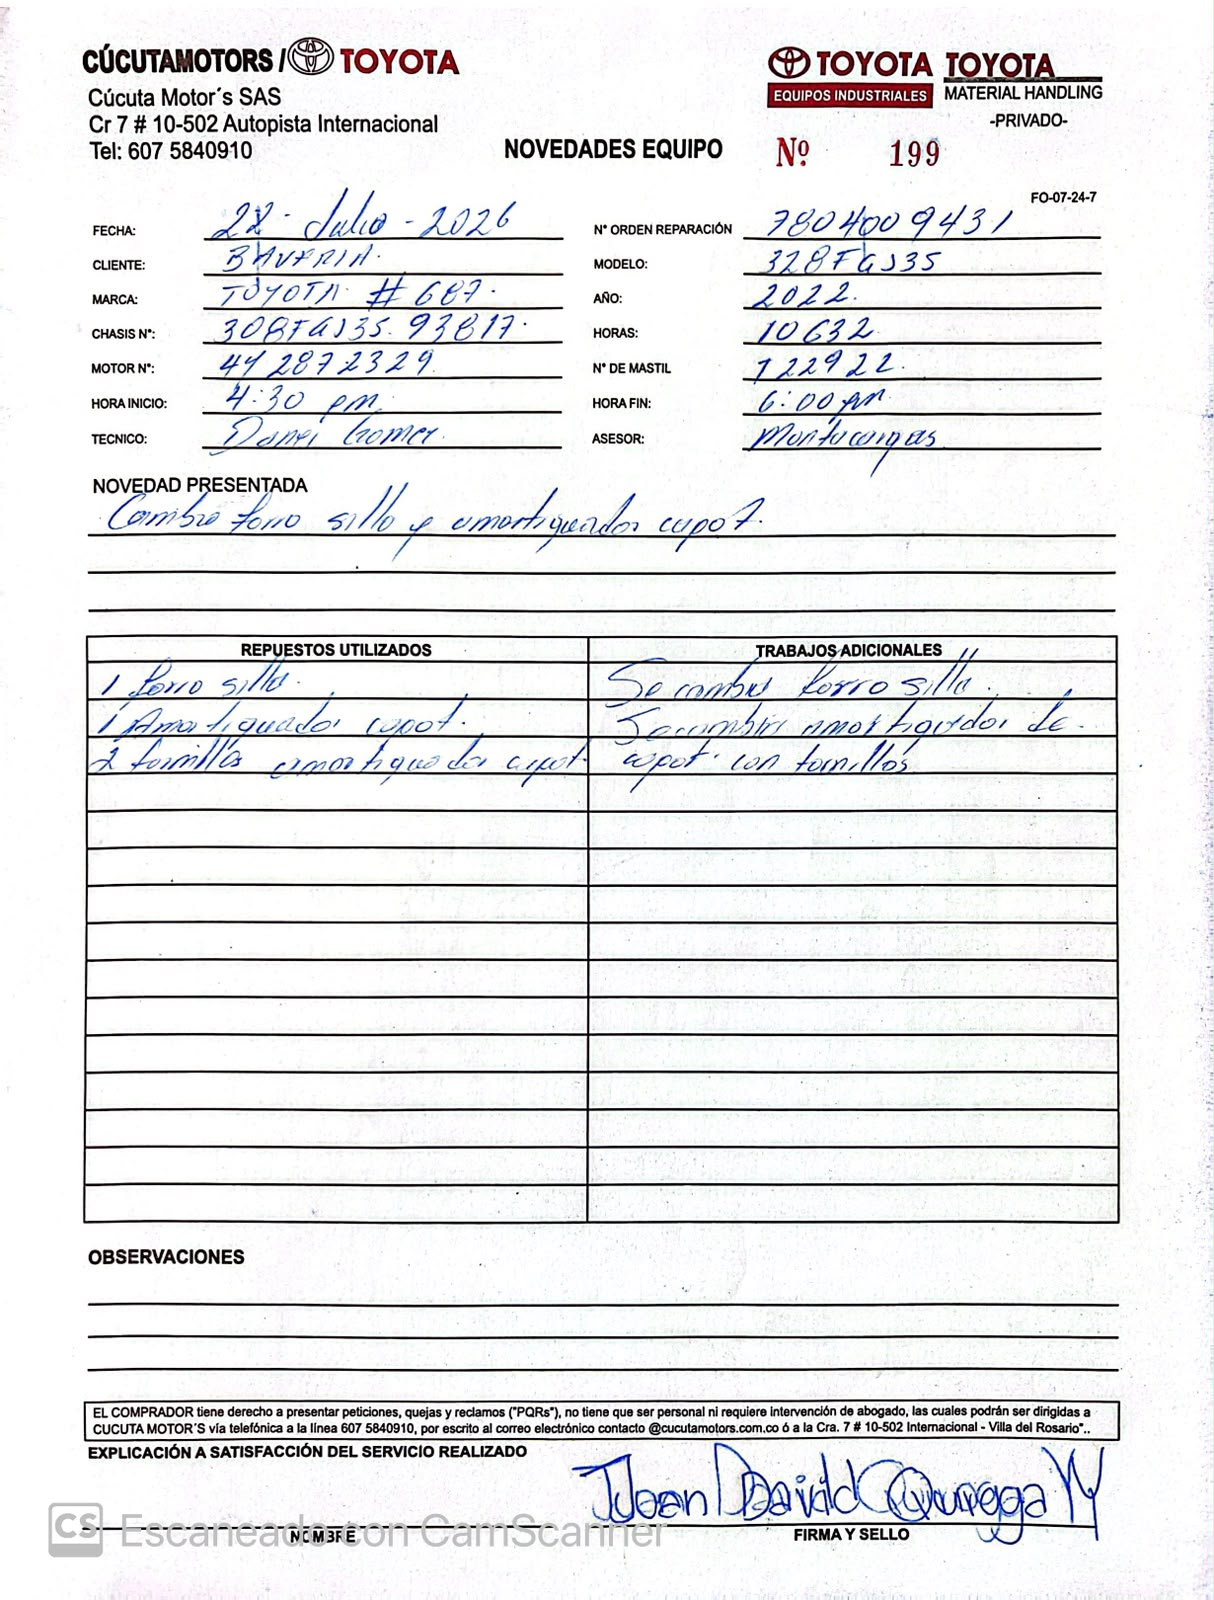 CÚCUTAMOTORS / TOYOTA
Cúcuta Motor´s SAS
Cr 7 # 10-502 Autopista Internacional
Tel: 607 5840910
NOVEDADES EQUIPO
TOYOTA
EQUIPOS INDUSTRIALES
TOYOTA
MATERIAL HANDLING
-PRIVADO-
Nº 199
FO-07-24-7
FECHA: 22 - Julio - 2026
N° ORDEN REPARACIÓN 7804009431
CLIENTE: BAVARIA.
MODELO: 328FGJ35
MARCA: TOYOTA # 687.
AÑO: 2022.
CHASIS N°: 308FGJ35.93817.
HORAS: 10632
MOTOR N°: 4Y2872329
N° DE MASTIL 722922.
HORA INICIO: 4:30 pm
HORA FIN: 6:00 pm
TECNICO: Gomez.
ASESOR: Montacargas
NOVEDAD PRESENTADA
Cambio forro silla y amortiguador capot.
REPUESTOS UTILIZADOS
1 forro silla.
1 Amortiguador capot.
2 tornillos amortiguador capot.
TRABAJOS ADICIONALES
Se cambia forro silla.
Se cambia amortiguador de
capot. con tornillos
OBSERVACIONES
EL COMPRADOR tiene derecho a presentar peticiones, quejas y reclamos ("PQRs"), no tiene que ser personal ni requiere intervención de abogado, las cuales podrán ser dirigidas a
CUCUTA MOTOR´S vía telefónica a la línea 607 5840910, por escrito al correo electrónico contacto @cucutamotors.com.co ó a la Cra. 7 # 10-502 Internacional - Villa del Rosario"..
EXPLICACIÓN A SATISFACCIÓN DEL SERVICIO REALIZADO
Juan David
NOMBRE
FIRMA Y SELLO
CS Escaneado con CamScanner